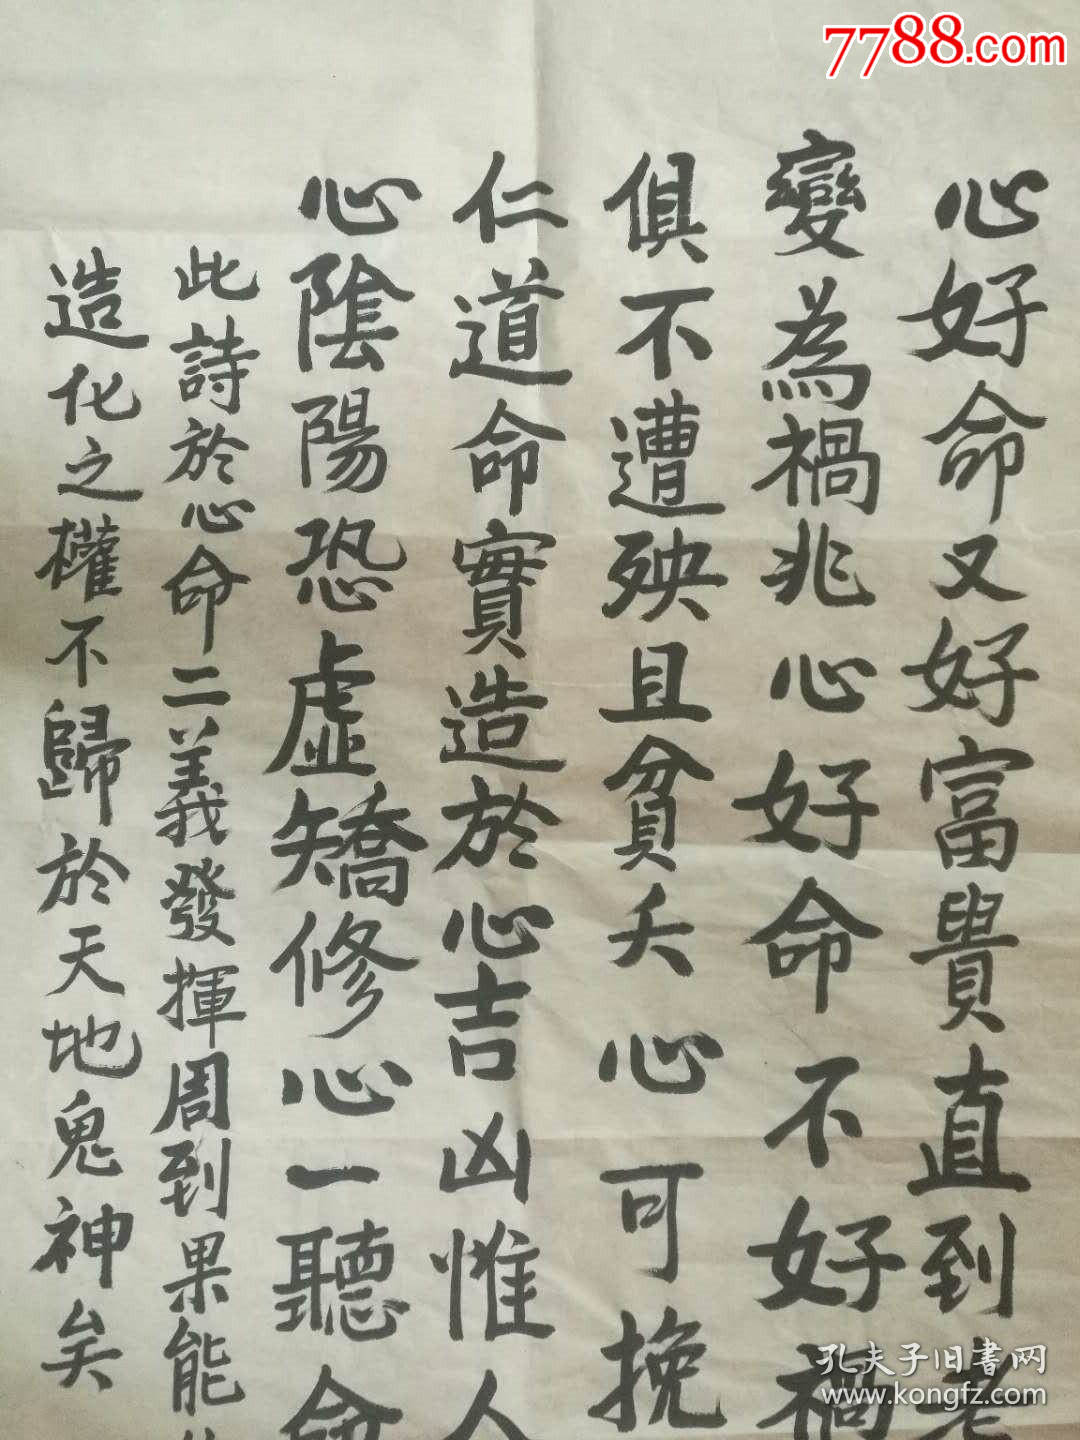 7788.com
心好命又好富貴直到老
變為禍兆心好命不好禍
俱不遭殃且貧夭心可挽
仁道命實造於心吉凶惟人
心陰陽恐虛矯修心一聽命
此詩於心命二義發揮周到果能
造化之權不歸於天地鬼神矣
孔夫子旧书网
www.kongfz.com